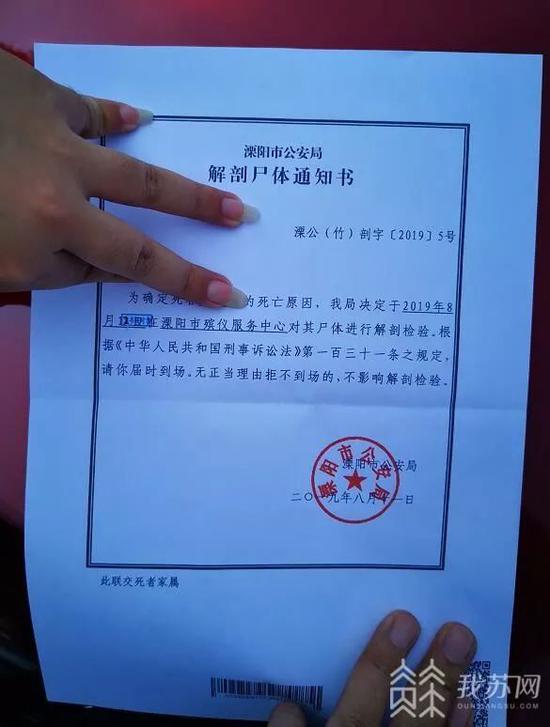 溧阳市公安局
解剖尸体通知书
溧公（竹）剖字〔2019〕5号
为确定死者 的死亡原因，我局决定于2019年8
月 在溧阳市殡仪服务中心对其尸体进行解剖检验。根
据《中华人民共和国刑事诉讼法》第一百三十一条之规定，
请你届时到场。无正当理由拒不到场的，不影响解剖检验。
溧阳市公安局
溧阳市公安局
二〇一九年八月十一日
此联交死者家属
我苏网
OURJIANGSU.COM